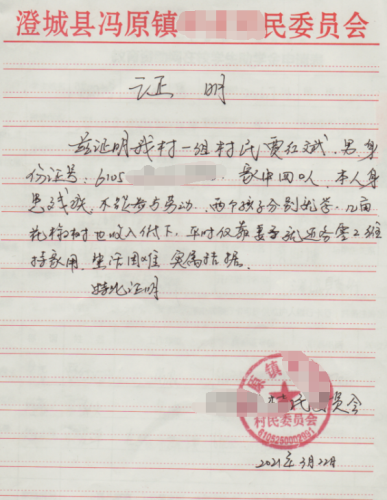 澄城县冯原镇 民委员会
证 明
兹证明我村一组村民贾红斌,男,身
份证号:6105 家中四口人,本人身
患残疾,不能参与劳动,两个孩子分别上学,几亩
花椒树也收入低下,平时仅靠妻子 零工维
持家用,生活困难,实属拮据。
特此证明
原镇
村民 委员会
村民委员会
2021年3月22日